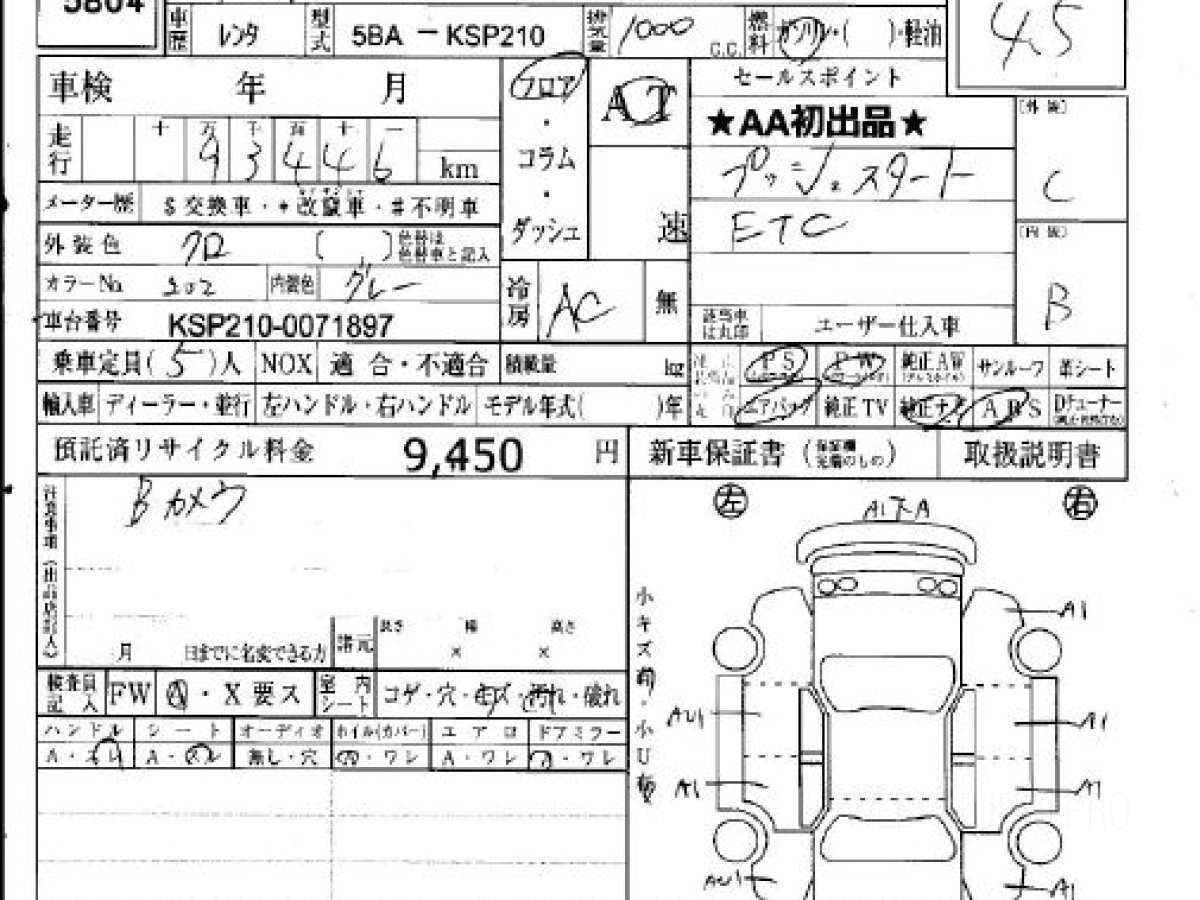 5804
車歴 レンタ 型式 5BA - KSP210 排気量 1000 C.C. 燃料 ガソリン・( )・軽油
4.5
車検 年 月
フロア・コラム・ダッシュ
AT
速
セールスポイント
★AA初出品★
プッシュスタート
ETC
[外装]
C
[内装]
B
走行 十 万 千 百 十 一
9 3 4 4 6 km
メーター歴 $交換車・*改竄車・#不明車
外装色 クロ ( ) 色替は色替車と記入
カラーNo. 202 内装色 グレー
冷房 AC 無
車台番号 KSP210-0071897
該当車は丸印 ユーザー仕入車
乗車定員( 5 )人 NOX 適合・不適合 積載量 kg
PS PW 純正AW サンルーフ 革シート
輸入車 ディーラー・並行 左ハンドル・右ハンドル モデル年式( )年
エアバッグ 純正TV 純正ナビ ABS Dチューナー
預託済リサイクル料金 9,450 円
新車保証書 (保証欄完備のもの) 取扱説明書
注意事項(出品店記入)
Bカメラ
左 右
A1下A
小キズ 小U
A1
AU1
A1
A1
A1
AU1
A1
月 日までに名変できる方 諸元 長さ × 幅 × 高さ
検査員記入 FW A・X要ス 室内シート コゲ・穴・キズ・汚れ・破れ
ハンドル シート オーディオ ホイル(カバー) エアロ ドアミラー
A・スレ A・スレ 無し・穴 A・ワレ A・ワレ A・ワレ